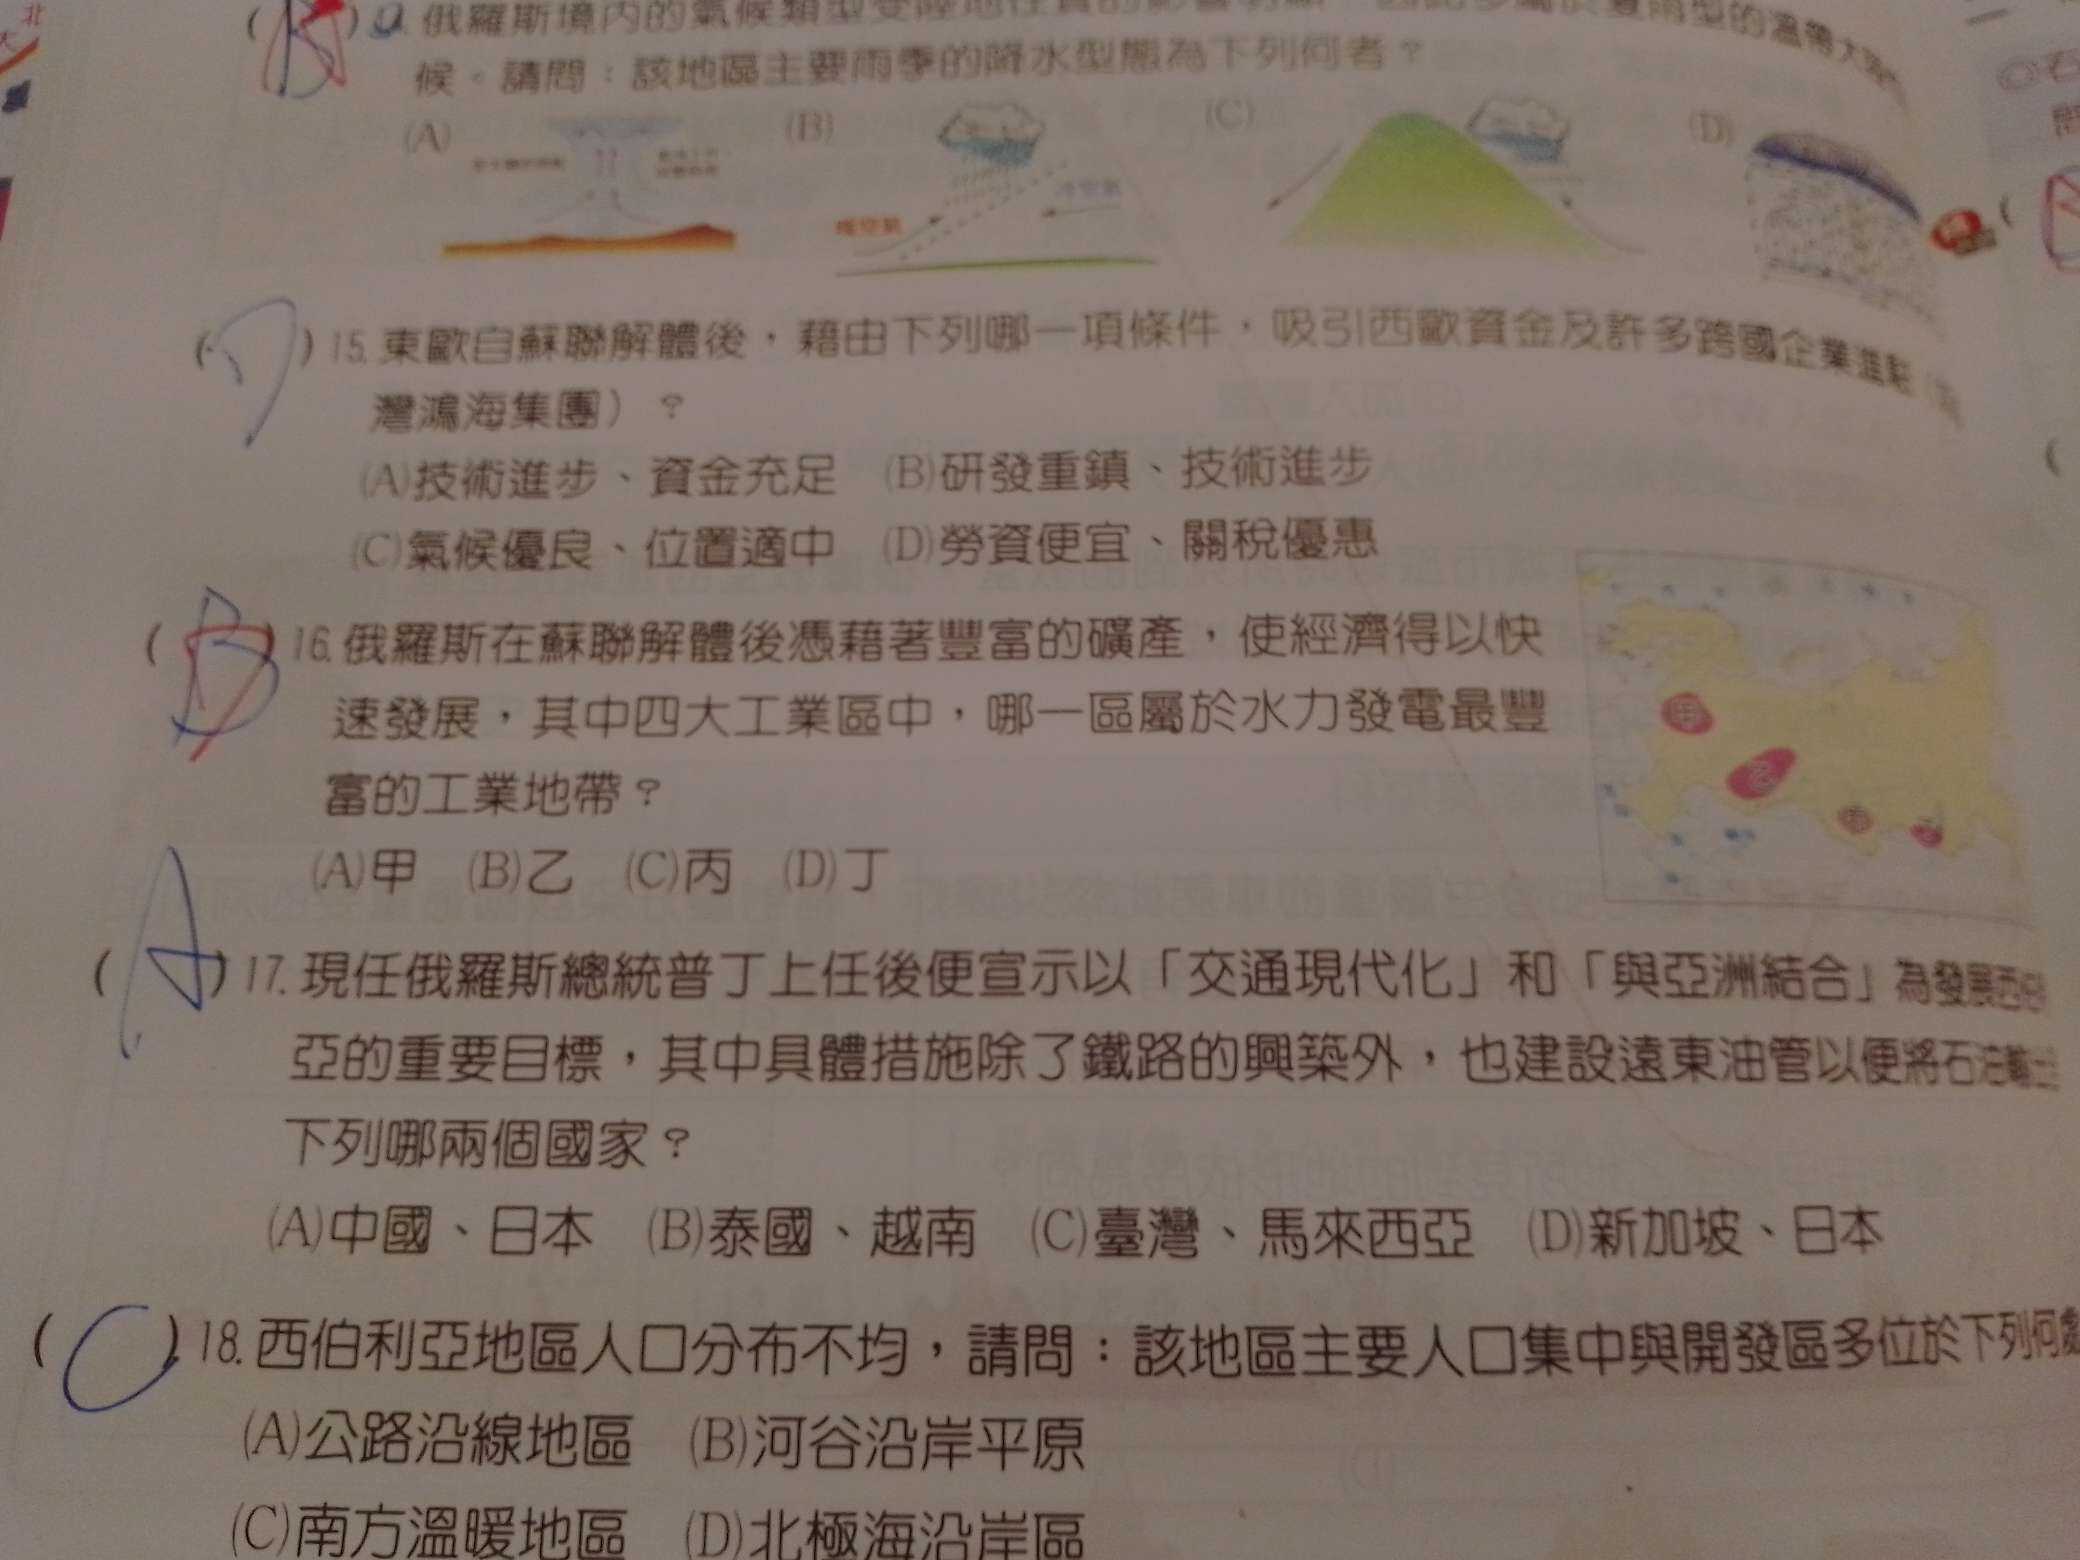 北
俄羅斯境內的氣候類型受陸地性質的影響明顯,因此多屬於夏雨型的溫帶大
候。請問:該地區主要雨季的降水型態為下列何者?
(A) (B) (C) (D)
暖空氣 冷空氣
(D) 15. 東歐自蘇聯解體後,藉由下列哪一項條件,吸引西歐資金及許多跨國企業進駐
灣鴻海集團)?
(A)技術進步、資金充足 (B)研發重鎮、技術進步
(C)氣候優良、位置適中 (D)勞資便宜、關稅優惠
(B) 16. 俄羅斯在蘇聯解體後憑藉著豐富的礦產,使經濟得以快
速發展,其中四大工業區中,哪一區屬於水力發電最豐
富的工業地帶?
甲 乙 丙 丁
(A)甲 (B)乙 (C)丙 (D)丁
(A) 17. 現任俄羅斯總統普丁上任後便宣示以「交通現代化」和「與亞洲結合」為發展西伯
亞的重要目標,其中具體措施除了鐵路的興築外,也建設遠東油管以便將石油輸
下列哪兩個國家?
(A)中國、日本 (B)泰國、越南 (C)臺灣、馬來西亞 (D)新加坡、日本
(C) 18. 西伯利亞地區人口分布不均,請問:該地區主要人口集中與開發區多位於下列何處
(A)公路沿線地區 (B)河谷沿岸平原
(C)南方溫暖地區 (D)北極海沿岸區